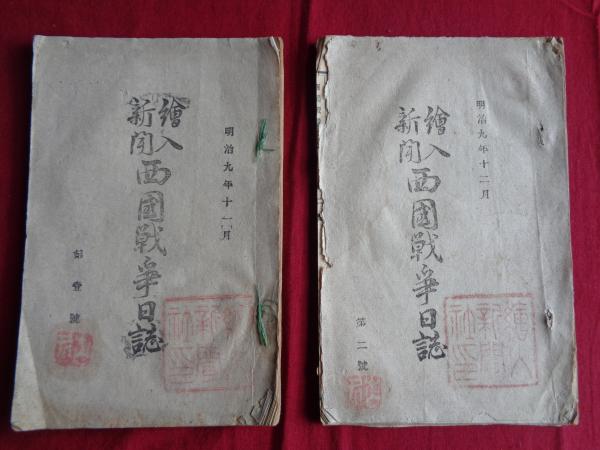 明治九年十一月
繪入
新聞
西國戰爭日誌
第壹號
明治九年十二月
繪入
新聞
西國戰爭日誌
第二號
繪入
新聞
社印